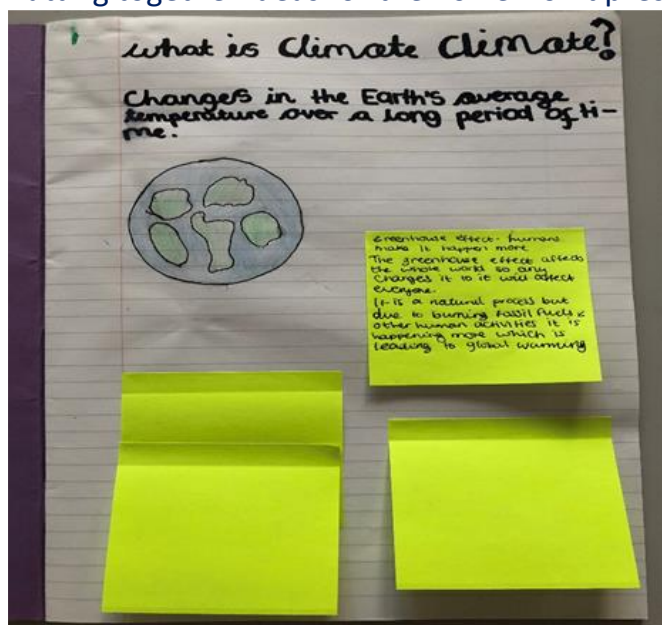 what is Climate Climate?
Changes in the Earth's average
temperature over a long period of ti-
me.
Greenhouse effect - humans
make it happen more
The greenhouse effect affects
the whole world so any
changes it to it will affect
everyone.
It is a natural process but
due to burning fossil fuels &
other human activities it is
happening more which is
leading to global warming